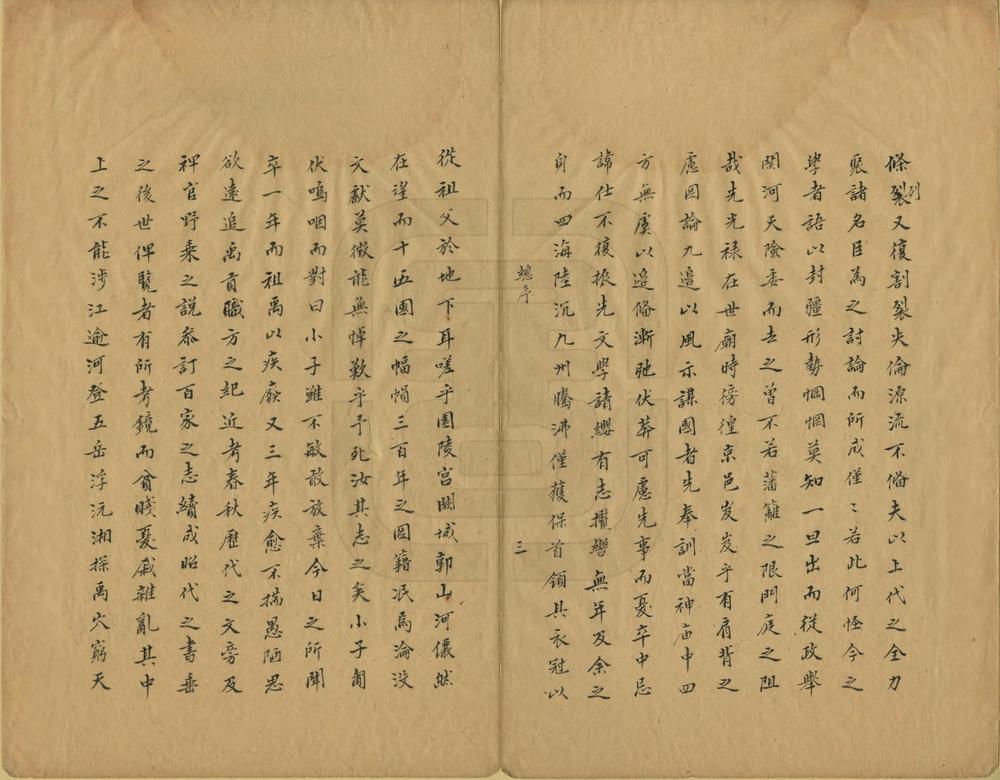 條裂又復割裂失倫源流不備夫以上代之全力
列
聚諸名臣為之討論而所成僅〻若此何怪今之
學者語以封疆形勢惘惘莫知一旦出而從政舉
関河天險委而去之曾不若藩籬之限門庭之阻
哉先光禄在世廟時徬徨京邑岌岌乎有肩背之
慮因論九邉以風示謀國者先奉訓當神庙中四
方無虞以邉備漸弛伏莽可慮先事而憂卒中忌
諱仕不復振先文學請纓有志攬轡無年及余之
身而四海陸沉九州騰沸僅獲保首領具衣冠以
總序
三
從祖父於地下耳嗟乎園陵宫闕城郭山河儼然
在望而十五國之幅㡓三百年之圖籍泯焉淪没
文獻莫徵能無悼歎乎予死汝其志之矣小子匍
伏嗚咽而對曰小子雖不敏敢放棄今日之所聞
卒一年而祖禹以疾廢又三年疾愈不揣愚陋思
欲遠追禹貢職方之紀近考春秋歷代之文旁及
稗官野乗之説叅訂百家之志續成昭代之書垂
之後世俾覽者有所考鏡而貧賤憂戚雜亂其中
上之不能涉江逾河登五岳浮沅湘探禹穴窮天